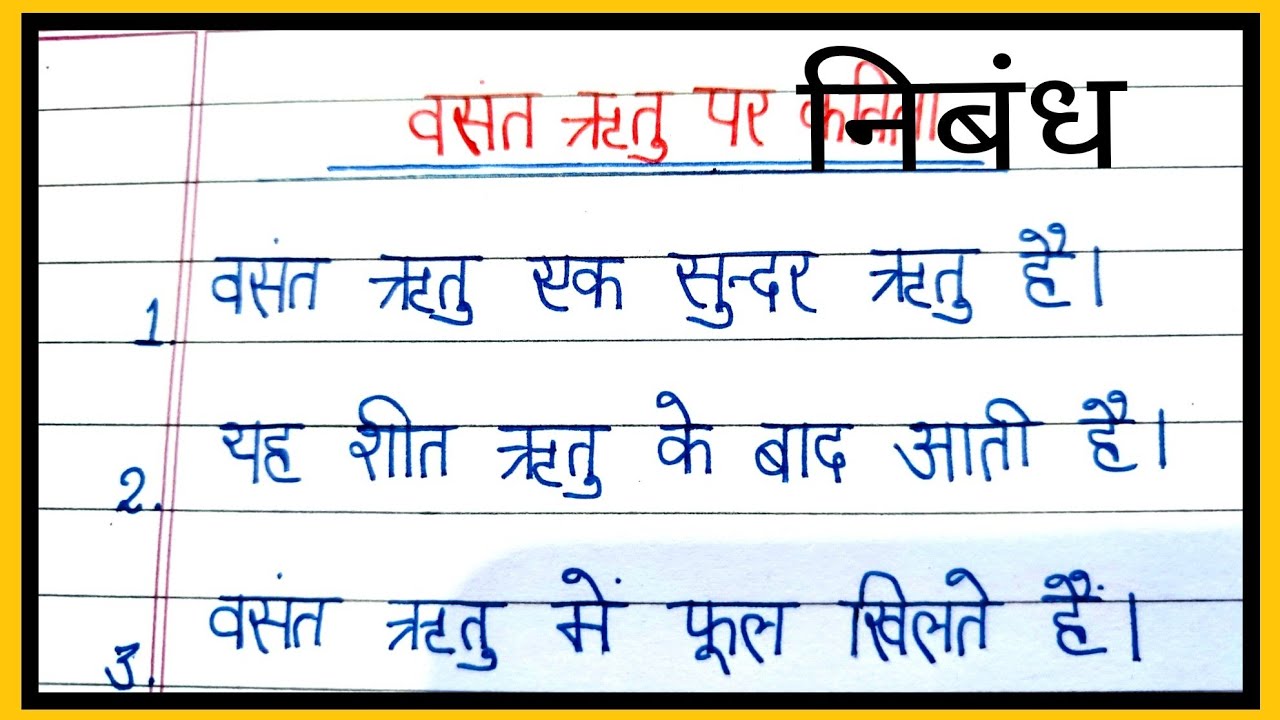 वसंत ऋतु पर निबंध
1. वसंत ऋतु एक सुन्दर ऋतु है।
2. यह शीत ऋतु के बाद आती है।
3. वसंत ऋतु में फूल खिलते हैं।